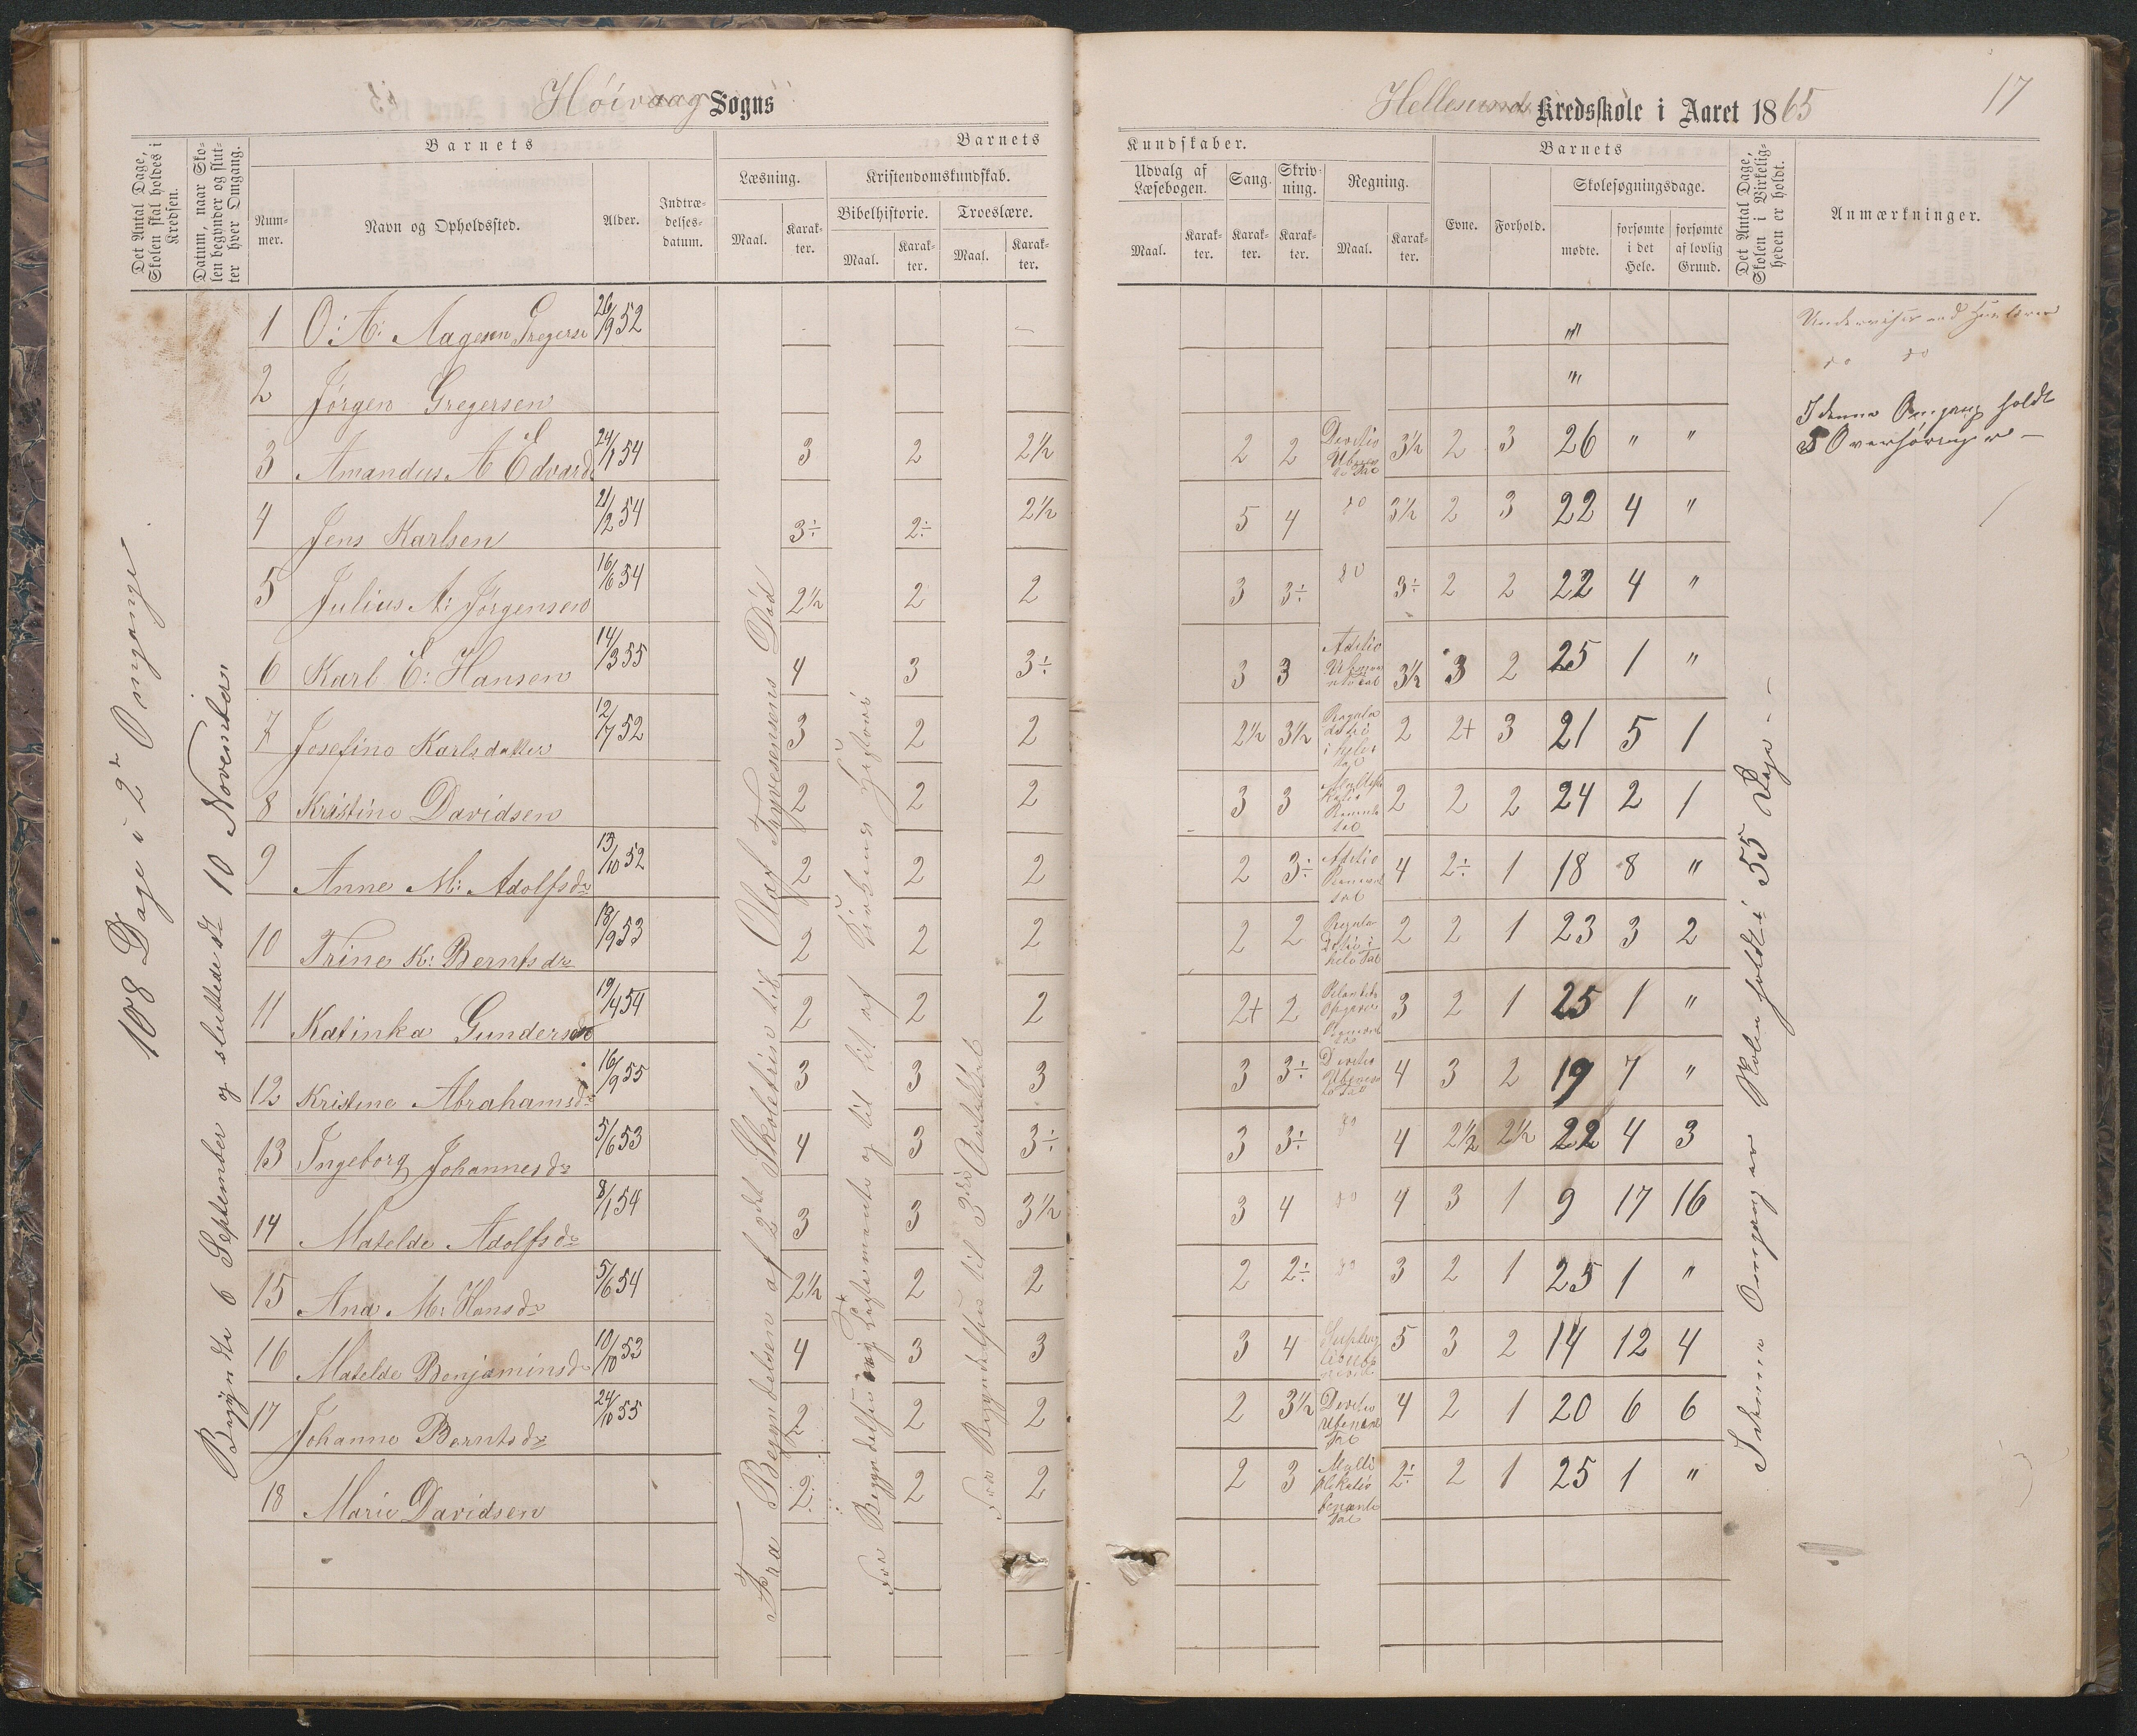 Høivaag Sogns
Hellesund Kredsskole i Aaret 1865
17
Det Antal Dage, Skolen skal holdes i Kredsen.
Datum, naar Skolen begynder og slutter hver Omgang.
Barnets
Nummer.
Navn og Opholdssted.
Alder.
Indtrædelsesdatum.
Barnets
Læsning.
Kristendomskundskab.
Bibelhistorie.
Troeslære.
Maal.
Karakter.
Maal.
Karakter.
Maal.
Karakter.
Kundskaber.
Udvalg af Læsebogen.
Sang.
Skrivning.
Regning.
Maal.
Karakter.
Karakter.
Karakter.
Maal.
Karakter.
Barnets
Evne.
Forhold.
Skolesøgningsdage.
mødte.
forsømte i det Hele.
forsømte af lovlig Grund.
Det Antal Dage, Skolen i Virkeligheden er holdt.
Anmærkninger.
108 Dage i 2 Omgange
Begyndte 6 September og sluttede 10 November
Fra Begyndelsen af 2det Skoletrin til Olaf Tryvesensens Død
Fra Begyndelsen til 3die Artikkel
I denne Omgang er Skolen holdt i 55 Dage -
1 O: A: Aagesen Gregersen 26/9 52 "
2 Jørgen Gregersen "
do do
I denne Omgang holdt
5 Overhøringer -
3 Amandus A Edvards 24/1 54 3 2 2½ 2 2 3½ 2 3 26 " "
4 Jens Karlsen 21/2 54 3÷ 2÷ 2½ 5 4 do 3½ 2 3 22 4 "
5 Julius A: Jørgensen 16/6 54 2½ 2 2 3 3÷ do 3÷ 2 2 22 4 "
6 Karl E: Hansen 14/3 55 4 3 3÷ 3 3 3½ 3 2 25 1 "
7 Josefine Karlsdatter 12/7 52 3 2 2 2½ 3½ 2 2+ 3 21 5 1
8 Kristine Davidsen 2 2 2 3 3 2 2 2 24 2 1
9 Anne M: Adolfsdr 13/10 52 2 2 2 2 3÷ 4 2÷ 1 18 8 "
10 Trine K: Berntsdr 18/9 53 2 2 2 2 2 2 2 1 23 3 2
11 Katinka Gundersdr 19/4 54 2 2 2 2+ 2 3 2 1 25 1 "
12 Kristine Abrahamsdr 16/9 55 3 3 3 3 3÷ 4 3 2 19 7 "
13 Ingeborg Johannesdr 5/6 53 4 3 3÷ 3 3÷ do 4 2½ 2½ 22 4 3
14 Matelde Adolfsdr 8/1 54 3 3 3½ 3 4 do 4 3 1 9 17 16
15 Ana M: Hansdr 5/6 54 2½ 2 2 2 2÷ do 3 2 1 25 1 "
16 Matelde Benjaminsdr 10/10 53 4 3 3 3 4 5 3 2 14 12 4
17 Johanne Berntsdr 24/10 55 2 2 2 2 3½ 4 2 1 20 6 6
18 Marie Davidsen 2 2 2 2 3 2÷ 2 1 25 1 "